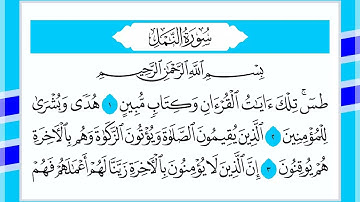 سُورَةُ النَّمْلِ
بِسْمِ اللَّهِ الرَّحْمَٰنِ الرَّحِيمِ
طسٓ ۚ تِلْكَ ءَايَٰتُ الْقُرْءَانِ وَكِتَابٍ مُّبِينٍ ١ هُدًى وَبُشْرَىٰ
لِلْمُؤْمِنِينَ ٢ الَّذِينَ يُقِيمُونَ الصَّلَوٰةَ وَيُؤْتُونَ الزَّكَوٰةَ وَهُم بِالْآخِرَةِ
هُمْ يُوقِنُونَ ٣ إِنَّ الَّذِينَ لَا يُؤْمِنُونَ بِالْآخِرَةِ زَيَّنَّا لَهُمْ أَعْمَٰلَهُمْ فَهُمْ